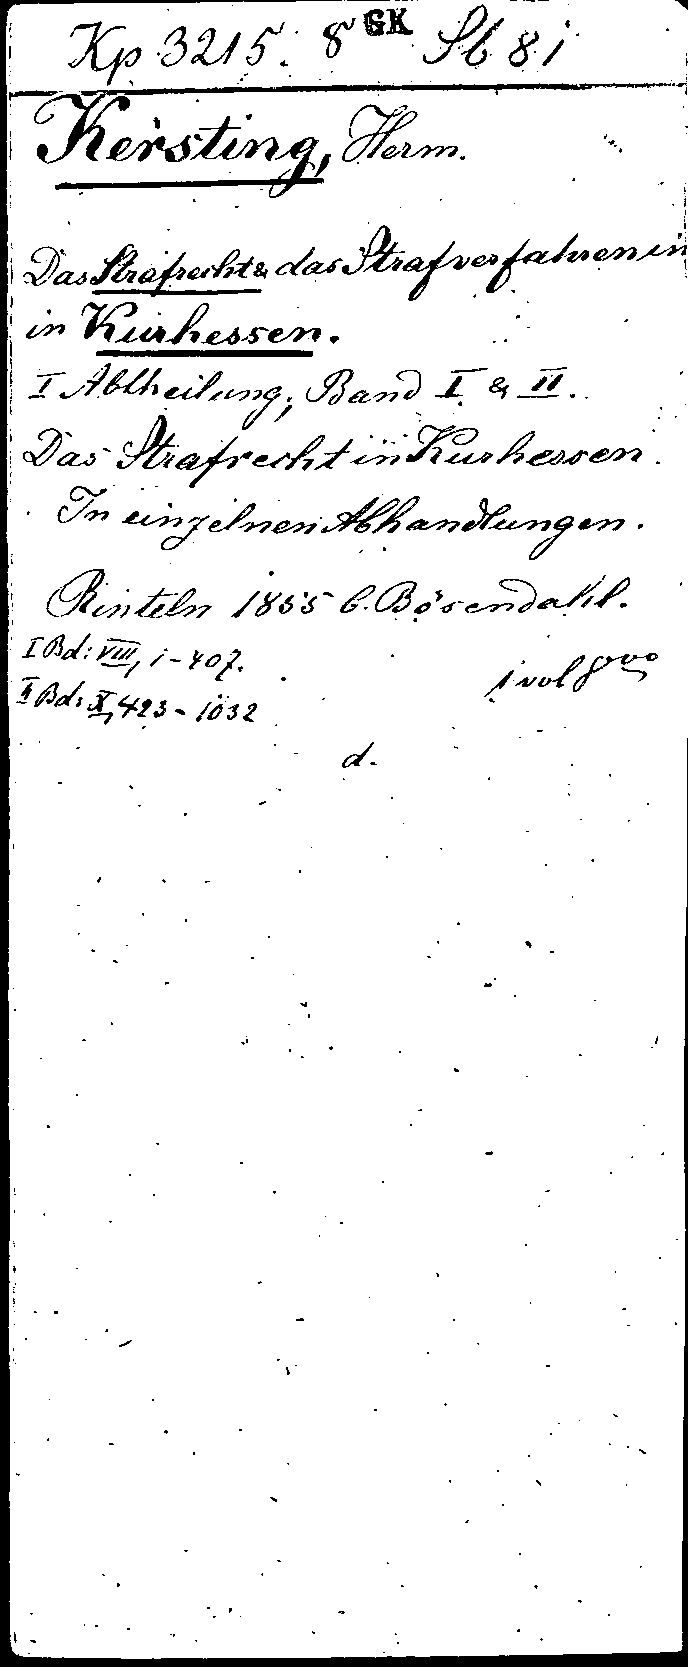 Kp 3215. 8 GK Sb 81
Kersting, Herm.
Das Strafrecht & das Strafverfahren in
in Kurhessen.
I Abtheilung, Band I & II.
Das Strafrecht in Kurhessen.
In einzelnen Abhandlungen.
Rinteln 1855 C. Bösendahl.
I Bd: VIII, 1-407.
1 vol 8vo
II Bd: X, 423-1032
d.